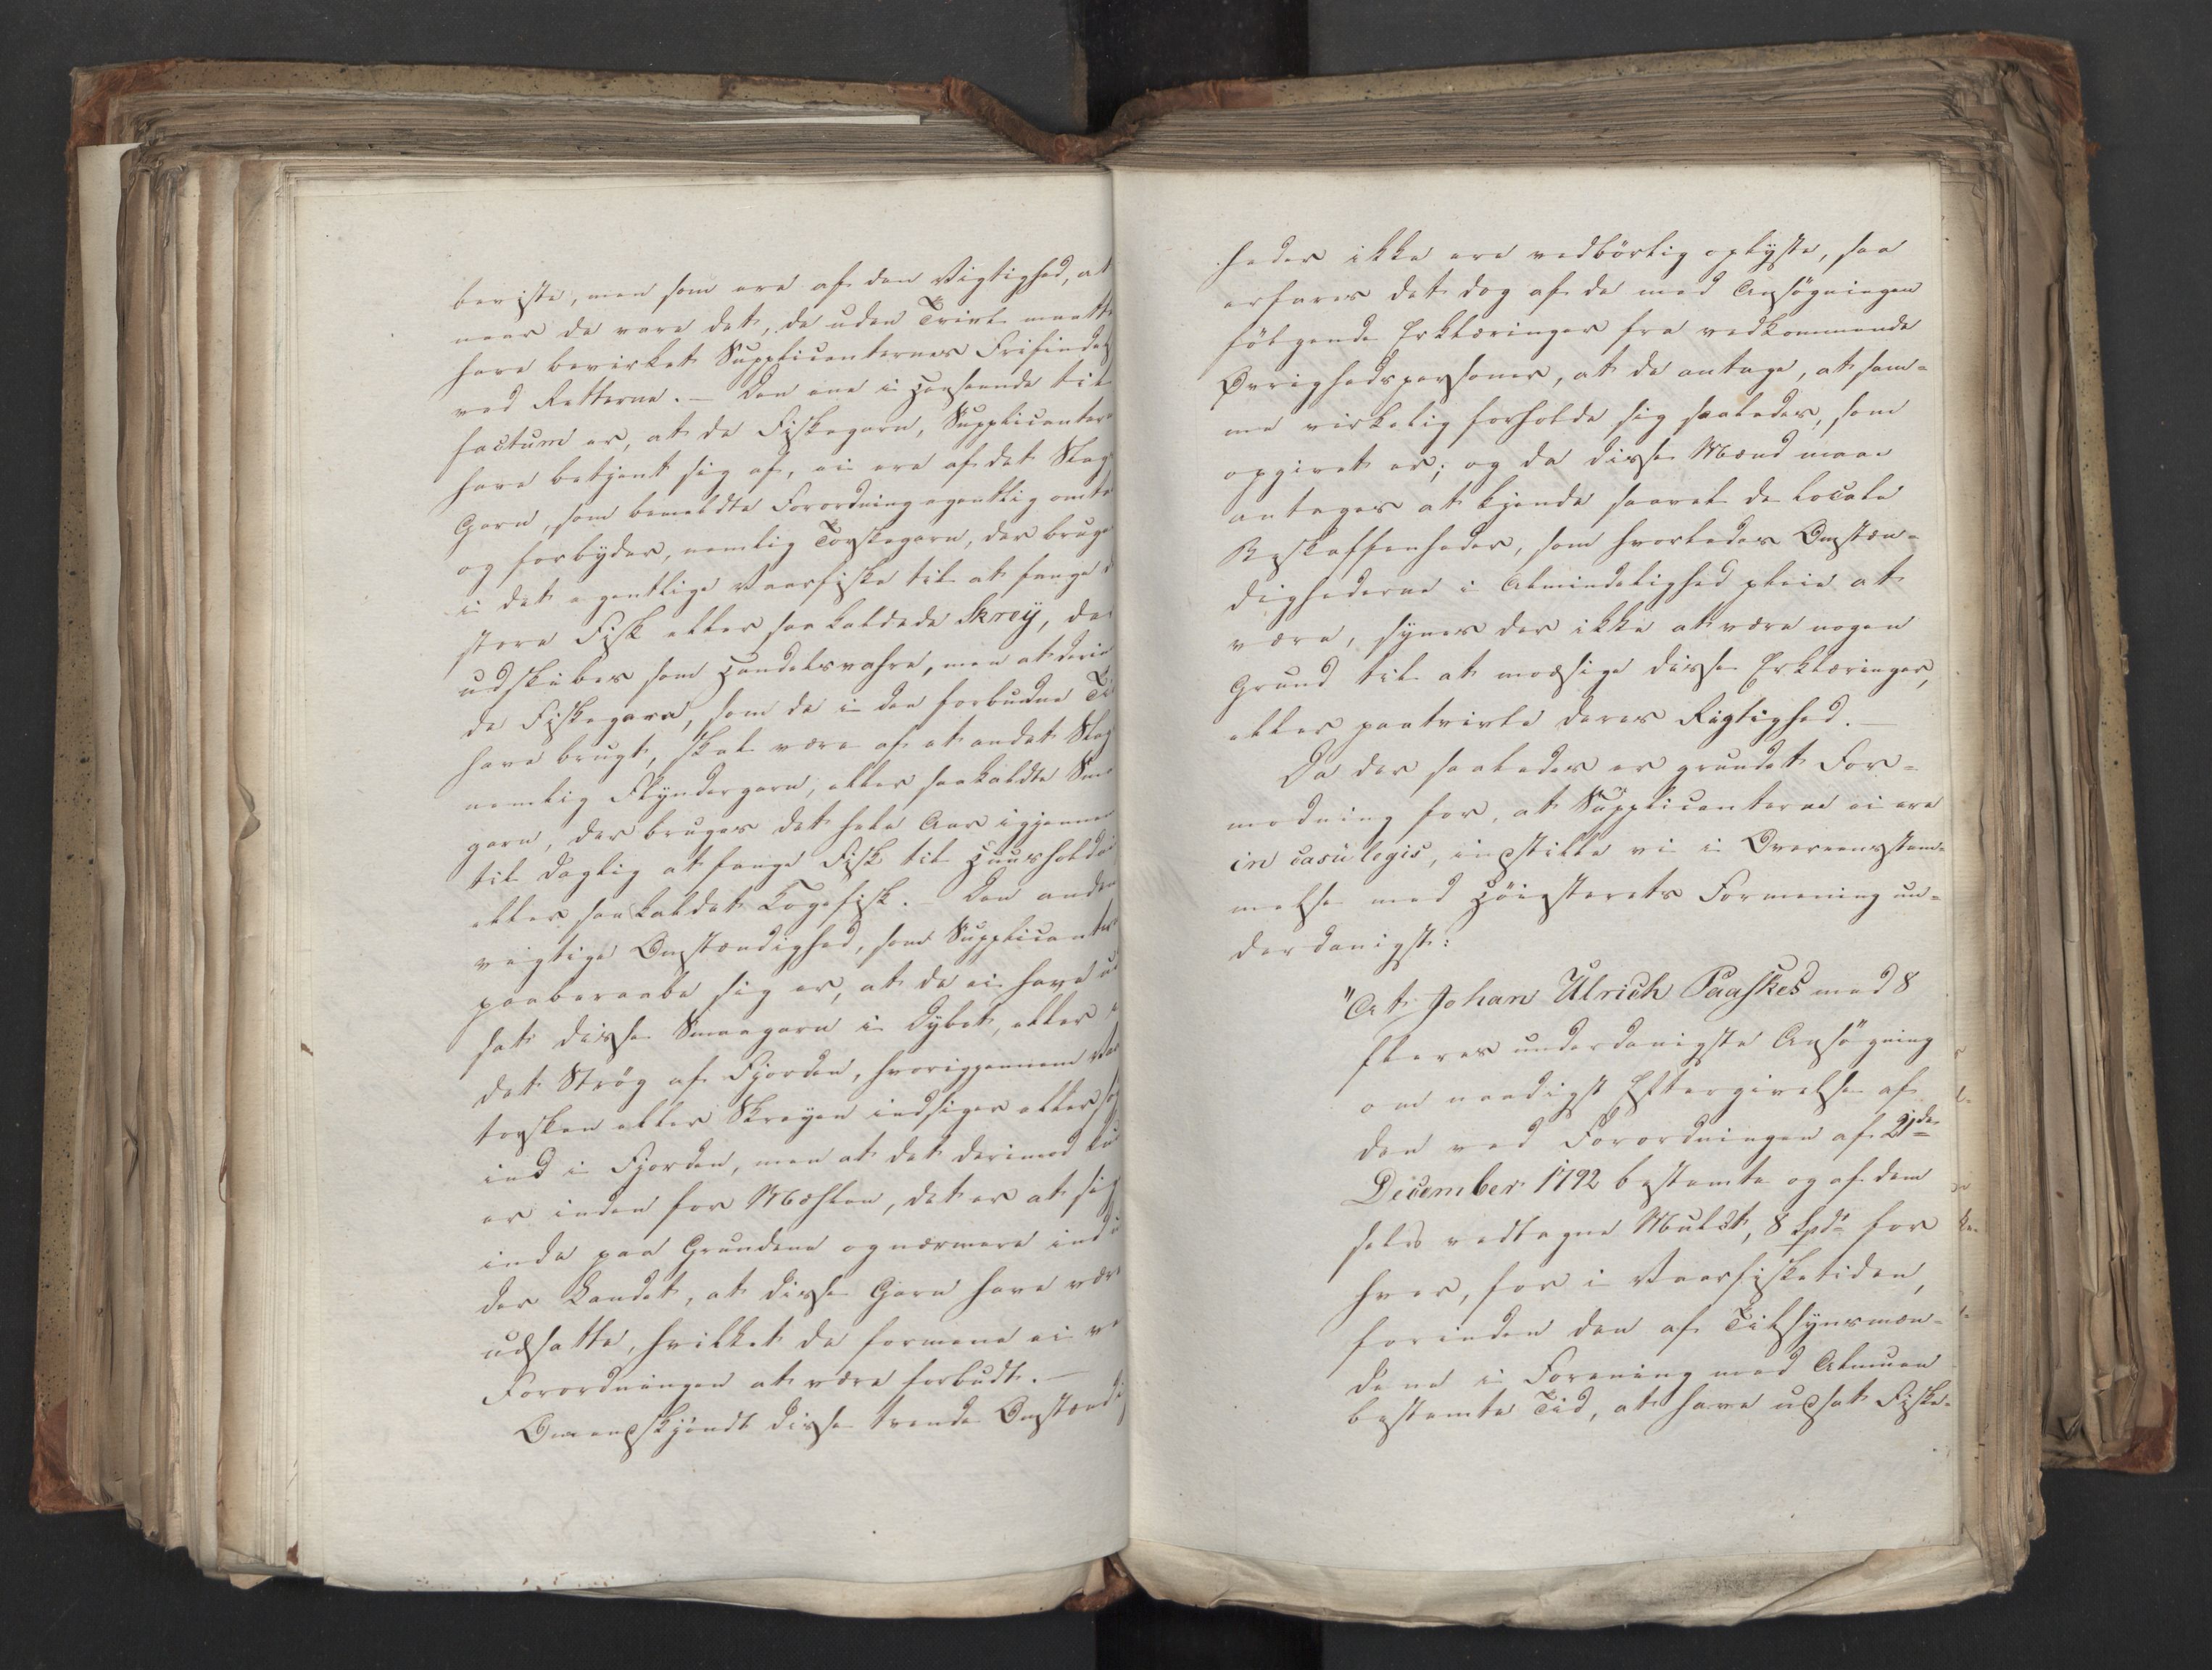 beviste, men som ere af den Vigtighed, at
naar de vare det, de uden Tvivl maatte
have bevirket Supplicanternes Frifindels
ved Retterne. – Den ene i Henseende til
factum er, at de Fiskegarn, Supplicantern
have betjent sig af, ei ere af det Slags
Garn, som bemeldte Forordning egentlig omta
og forbyder, nemlig Torskegarn, der bruge
i det egentlige Vaarfiske til at fange d
store Fisk eller saa kaldede Skrey, der
udskibes som Handelsvahre, men at derim
de Fiskegarn, som de i den forbudne Ti
have brugt, skal være af et andet Slag
nemlig Flyndergarn, eller saakaldte Sma
garn, der bruges det hele Aar igjennem
til daglig at fange Fisk til Huusholdni
eller saakaldet Kogefisk. – Den anden
vigtige Omstændighed, som Supplicanter
paaberaabe sig er, at de ei have ud
sat disse Smaagarn i Dybet, eller i
det Strøg af Fjorden, hvorigjennem Vaar
torsken eller Skreyen indsiger eller søg
ind i Fjorden, men at det derimod kun
er inden for Mæhlen, det er at sige
inde paa Grundene og nærmere ind u
der Landet, at disse Garn have vær
udsatte, hvilket de formene ei ve
Forordningen at være forbudt. –
Omendskjøndt disse tvende Omstændig
heder ikke ere vedbørlig oplyste, saa
erfares det dog af de med Ansøgningen
følgende Erklæringer fra vedkommende
Øvrighedspersoner, at de antage, at sam-
me virkelig forholde sig saaledes, som
opgivet er; og da disse Mænd maae
antages at kjende saavel de locale
Beskaffenheder, som hvorledes Omstæn-
dighederne i Almindelighed pleie at
være, synes der ikke at være nogen
Grund til at modsige disse Erklæringer,
eller paatvivle deres Rigtighed. –
Da der saaledes er grundet For-
modning for, at Supplicanterne ei ere
in casu legis, indstille vi i Overeensstem-
melse med Høiesterets Formening un-
derdanigst:
"At Johan Ulrich Paaskes med 8
fleres underdanigste Ansøgning
om naadigst Eftergivelse af
den ved Forordningen af 21de
December 1792 bestemte og af dem
selv vedtagne Mulct, 8 Spdr for
hver, for i Vaarfisketiden,
forinden den af Tilsynsmæn-
dene i Forening med Almuen
bestemte Tid, at have udsat Fiske-